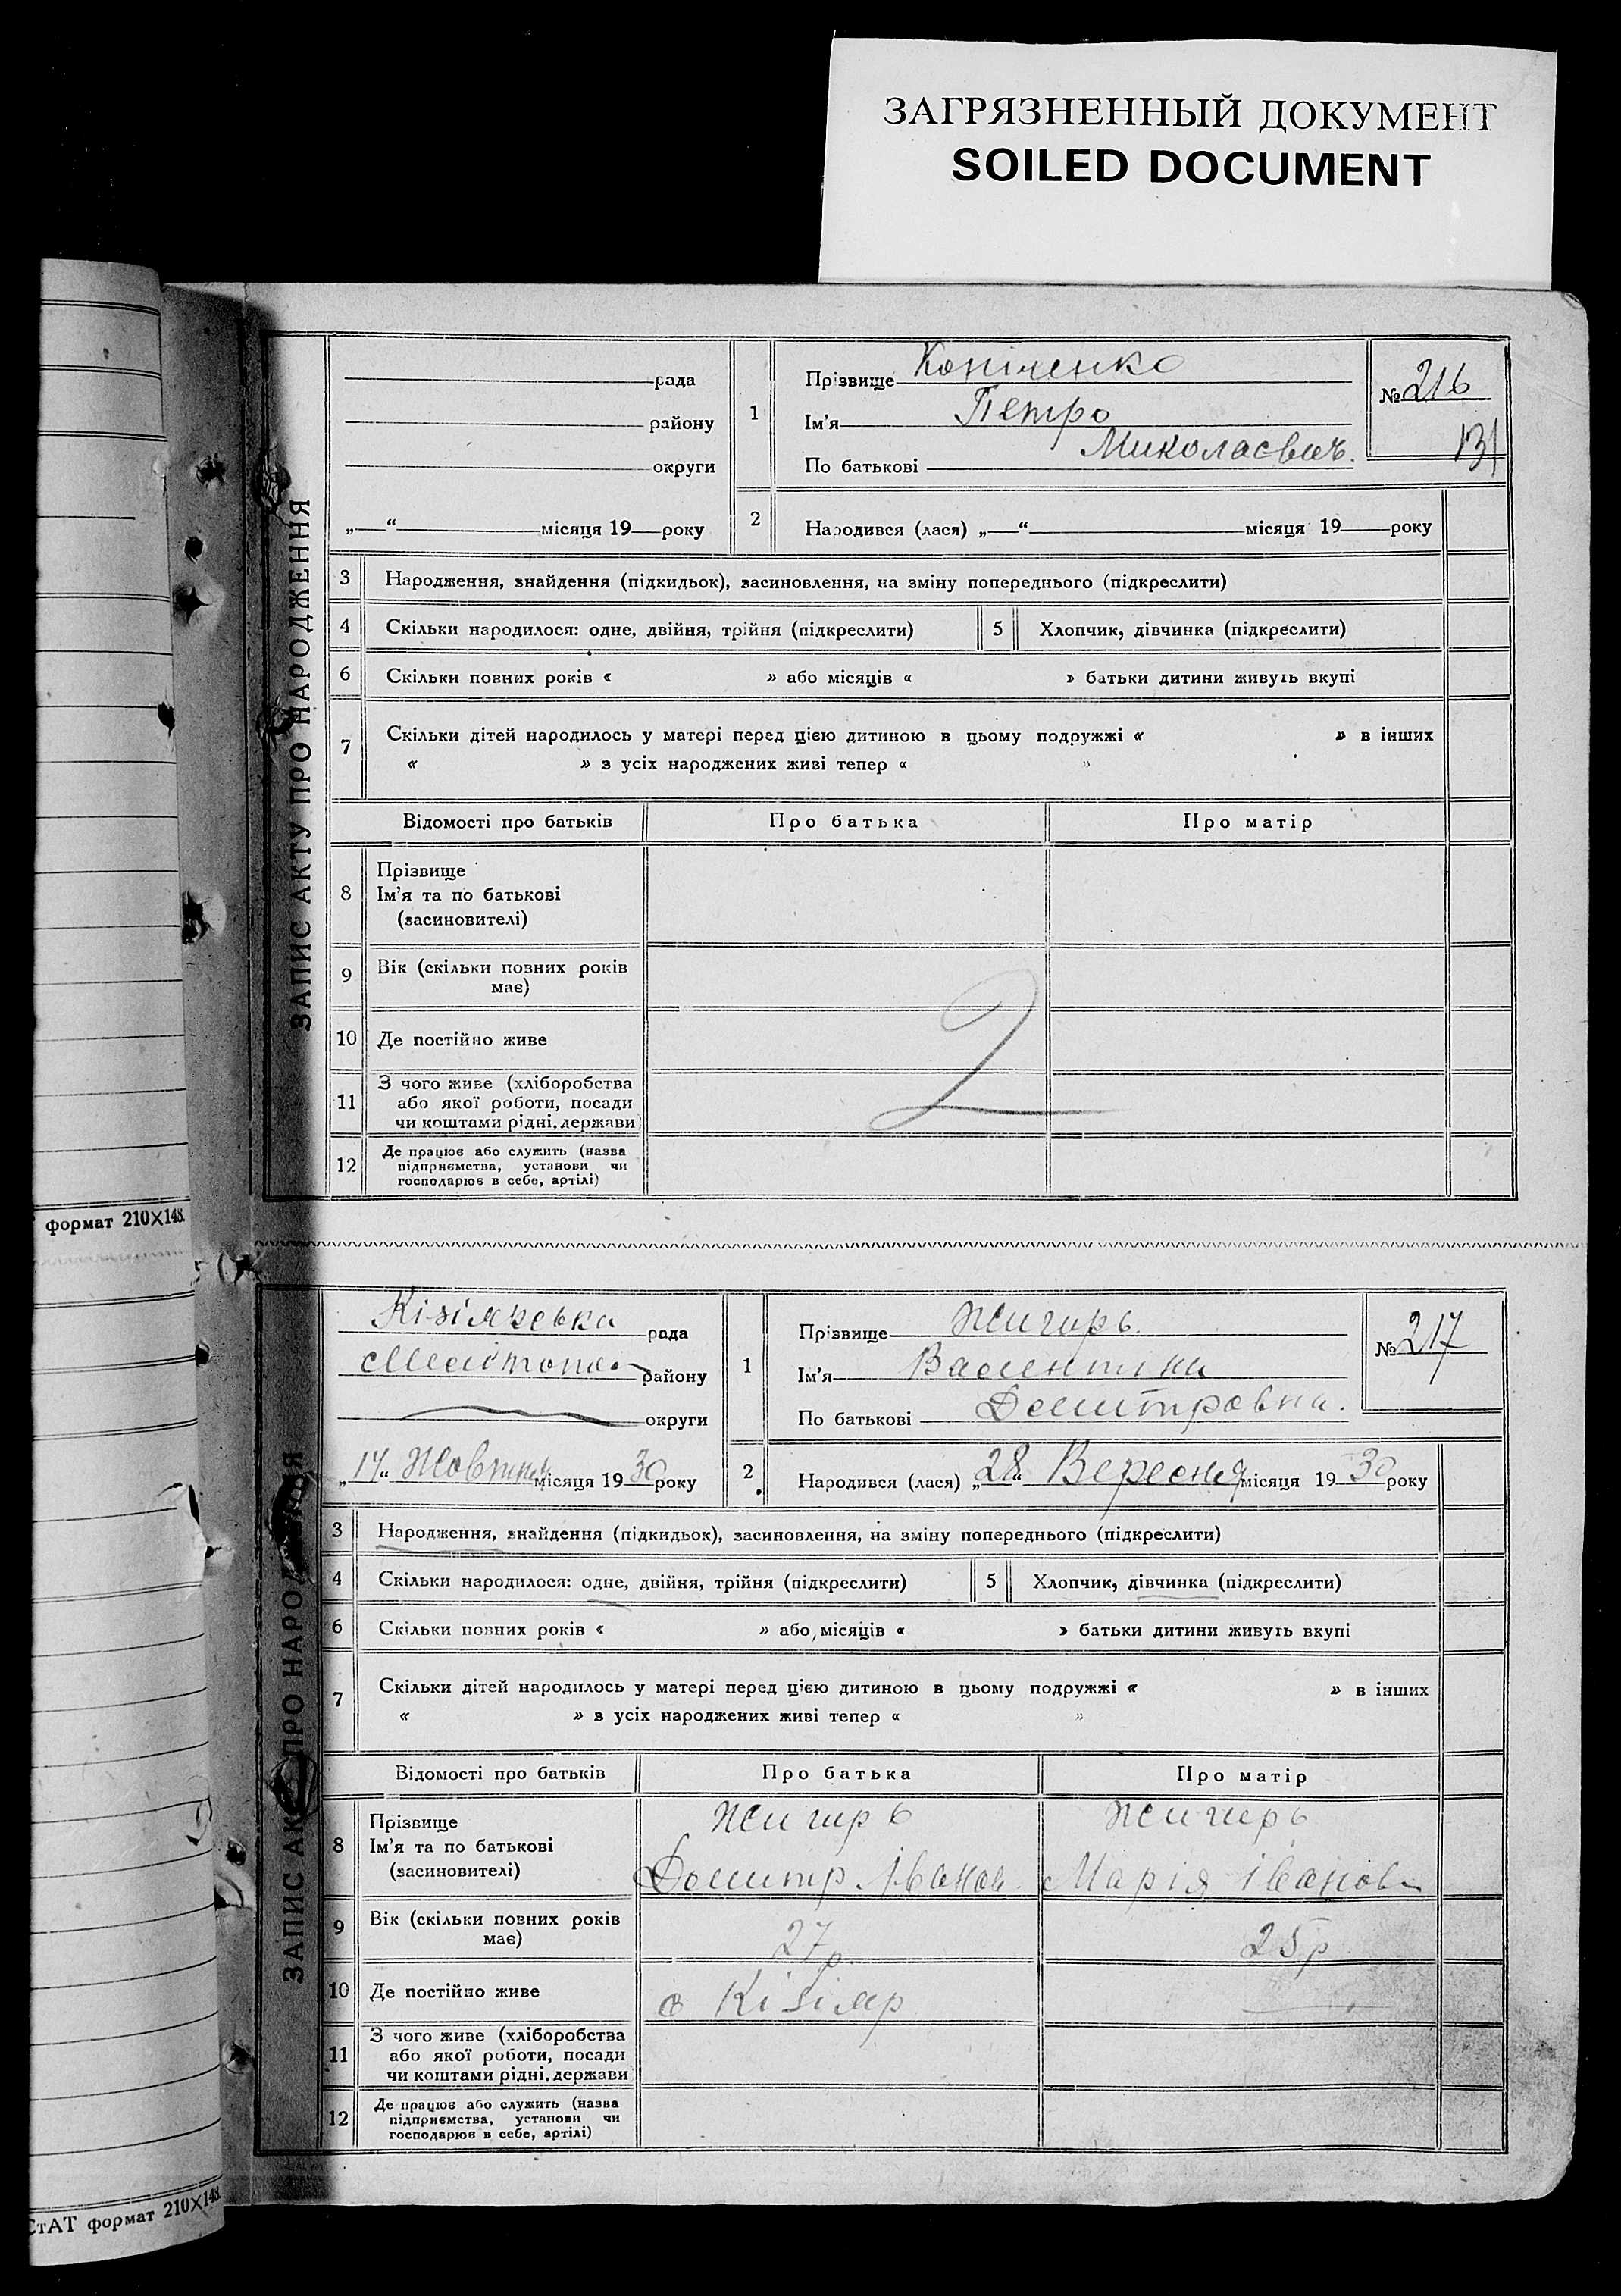 ЗАГРЯЗНЕННЫЙ ДОКУМЕНТ
SOILED DOCUMENT
ЗАПИС АКТУ ПРО НАРОДЖЕННЯ
рада
району
округи
„ “ місяця 19 року
1
Прізвище Копіченко
Ім'я Петро
По батькові Миколаєвич.
№ 216
131
2 Народився (лася) „ “ місяця 19 року
3 Народження, знайдення (підкидьок), засиновлення, на зміну попереднього (підкреслити)
4 Скільки народилося: одне, двійня, трійня (підкреслити)
5 Хлопчик, дівчинка (підкреслити)
6 Скільки повних років « » або місяців « » батьки дитини живуть вкупі
7 Скільки дітей народилось у матері перед цією дитиною в цьому подружжі « » в інших
« » з усіх народжених живі тепер « »
Відомості про батьків Про батька Про матір
8 Прізвище
Ім'я та по батькові
(засиновителі)
9 Вік (скільки повних років
має)
10 Де постійно живе
11 З чого живе (хліборобства
або якої роботи, посади
чи коштами рідні, держави
12 Де працює або служить (назва
підприємства, установи чи
господарює в себе, артілі)
2
формат 210Х148.
ЗАПИС АКТУ ПРО НАРОДЖЕННЯ
Кізіярська рада
Мелітопол району
округи
„14“ Жовтня місяця 1930 року
1
Прізвище Жигирь
Ім'я Валентина
По батькові Домитровна.
№ 217
2 Народився (лася) „28“ Вересня місяця 1930 року
3 Народження, знайдення (підкидьок), засиновлення, на зміну попереднього (підкреслити)
4 Скільки народилося: одне, двійня, трійня (підкреслити)
5 Хлопчик, дівчинка (підкреслити)
6 Скільки повних років « » або місяців « » батьки дитини живуть вкупі
7 Скільки дітей народилось у матері перед цією дитиною в цьому подружжі « » в інших
« » з усіх народжених живі тепер « »
Відомості про батьків Про батька Про матір
8 Прізвище Жигирь Жигирь
Ім'я та по батькові
(засиновителі) Домитр Іванов. Марія Іванов
9 Вік (скільки повних років
має) 27р 25р
10 Де постійно живе с Кізіяр
11 З чого живе (хліборобства
або якої роботи, посади
чи коштами рідні, держави
12 Де працює або служить (назва
підприємства, установи чи
господарює в себе, артілі)
СтАТ формат 210Х148.